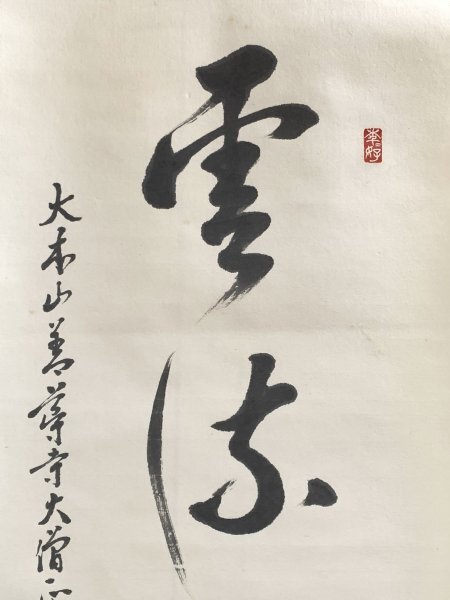 雲流
大本山善導寺大僧正